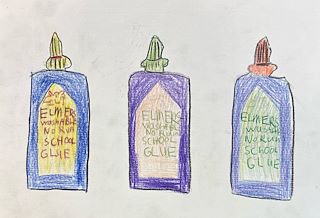 ELMERS
WASHABLE
NO RUN
SCHOOL
GLUE
ELMERS
WASHABLE
NO RUN
SCHOOL
GLUE
ELMERS
WASHABLE
NO RUN
SCHOOL
GLUE